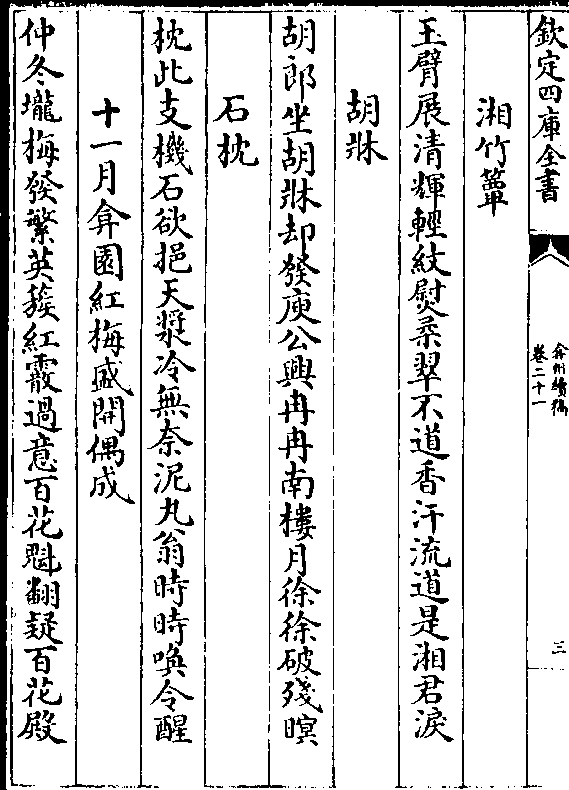 欽定四庫全書
弇州續稿
卷二十一
三
湘竹簟
玉臂展清輝輕紋熨柔翠不道香汗流道是湘君淚
胡牀
胡郎坐胡牀却發庾公興冉冉南樓月徐徐破殘暝
石枕
枕此支機石欲挹天漿冷無奈泥丸翁時時喚令醒
十一月弇園紅梅盛開偶成
仲冬壠梅發繁英簇紅霰過意百花魁翻疑百花殿